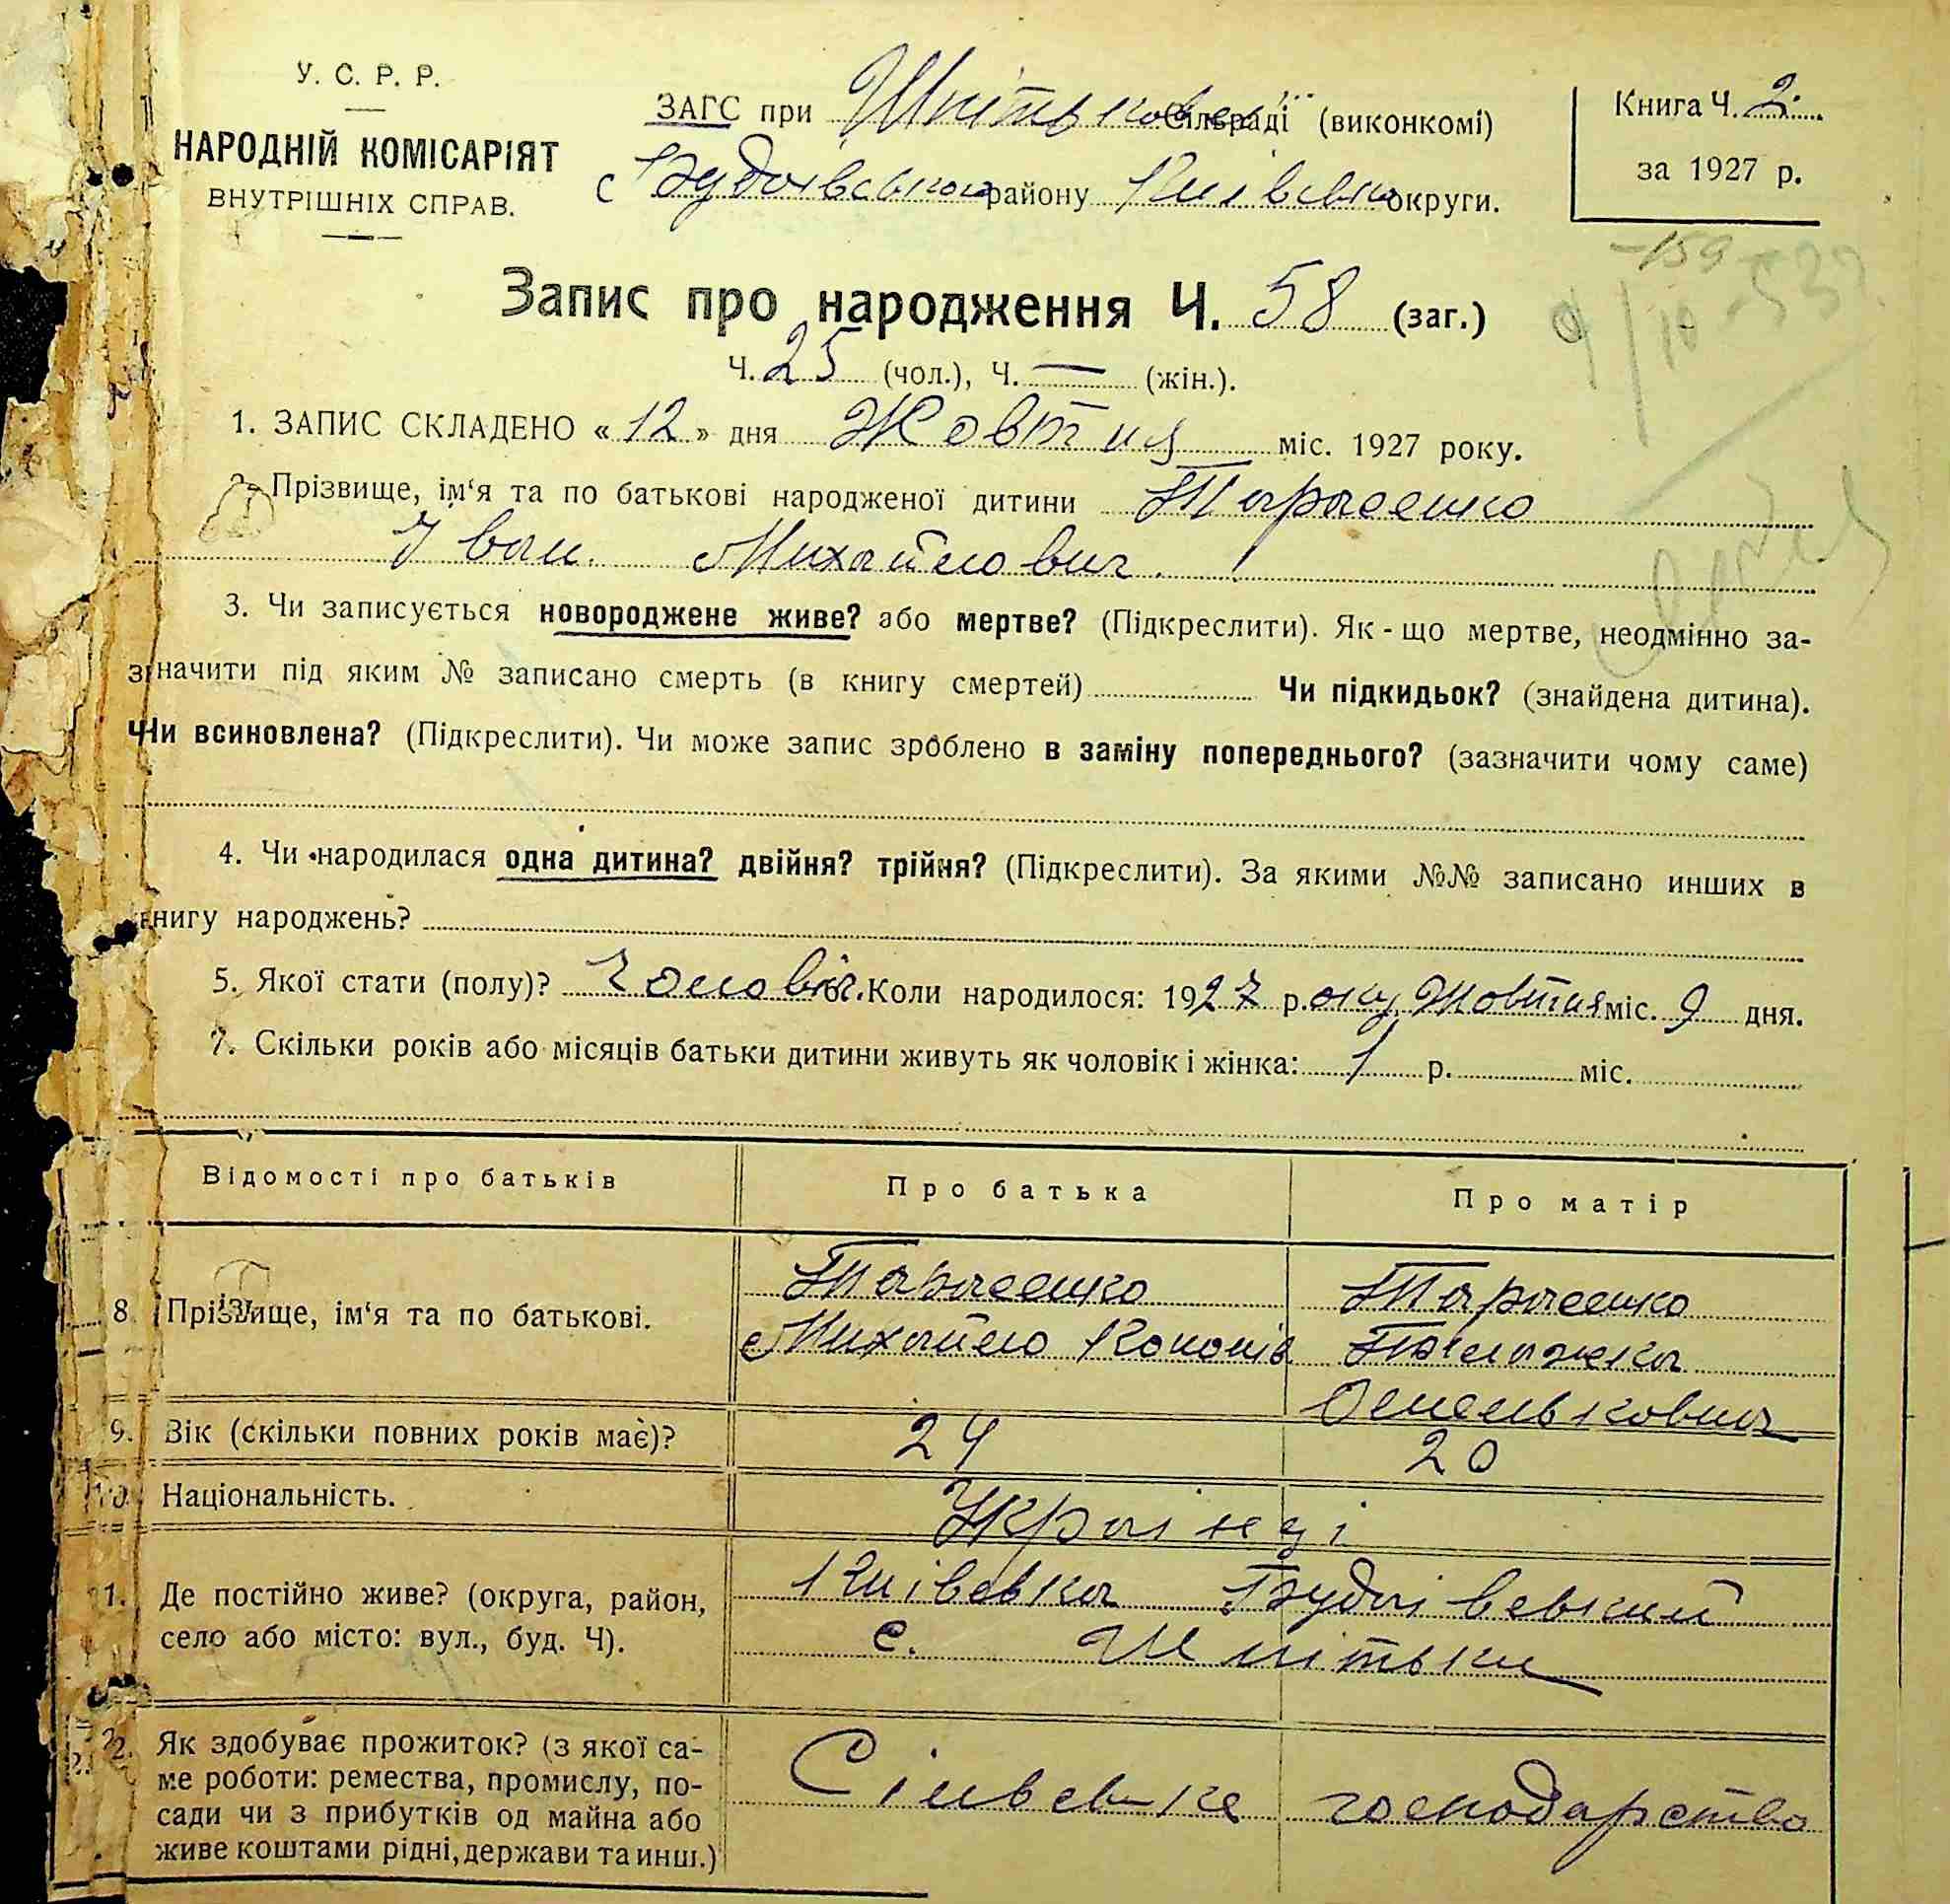 У. С. Р. Р.
НАРОДНІЙ КОМІСАРІЯТ
ВНУТРІШНІХ СПРАВ.
ЗАГС при Шпітьковск. Сільраді (виконкомі)
с Будаівського району Київсько округи.
Книга Ч. 2.
за 1927 р.
Запис про народження Ч. 58 (заг.)
Ч. 25 (чол.), Ч. — (жін.).
1. ЗАПИС СКЛАДЕНО «12» дня Жовтня міс. 1927 року.
2. Прізвище, ім‘я та по батькові народженої дитини Тарасенко
Іван. Михайлович.
3. Чи записується новороджене живе? або мертве? (Підкреслити). Як-що мертве, неодмінно за-
значити під яким № записано смерть (в книгу смертей) Чи підкидьок? (знайдена дитина).
Чи всиновлена? (Підкреслити). Чи може запис зроблено в заміну попереднього? (зазначити чому саме)
4. Чи народилася одна дитина? двійня? трійня? (Підкреслити). За якими №№ записано инших в
книгу народжень?
5. Якої стати (полу)? Чоловіч. 6. Коли народилося: 1927 року Жовтня міс. 9 дня.
7. Скільки років або місяців батьки дитини живуть як чоловік і жінка: 1 р. міс.
Відомості про батьків Про батька Про матір
8. Прізвище, ім‘я та по батькові.
Тарасенко Тарасенко
Михайло Кононів Палажка
Омельковна
9. Вік (скільки повних років має)? 24 20
10. Національність. Українці
11. Де постійно живе? (округа, район, Київська Будаівський
село або місто: вул., буд. Ч). с. Шпітьки
12. Як здобуває прожиток? (з якої са-
ме роботи: ремества, промислу, по- Сільське господарство
сади чи з прибутків од майна або
живе коштами рідні, держави та инш.)